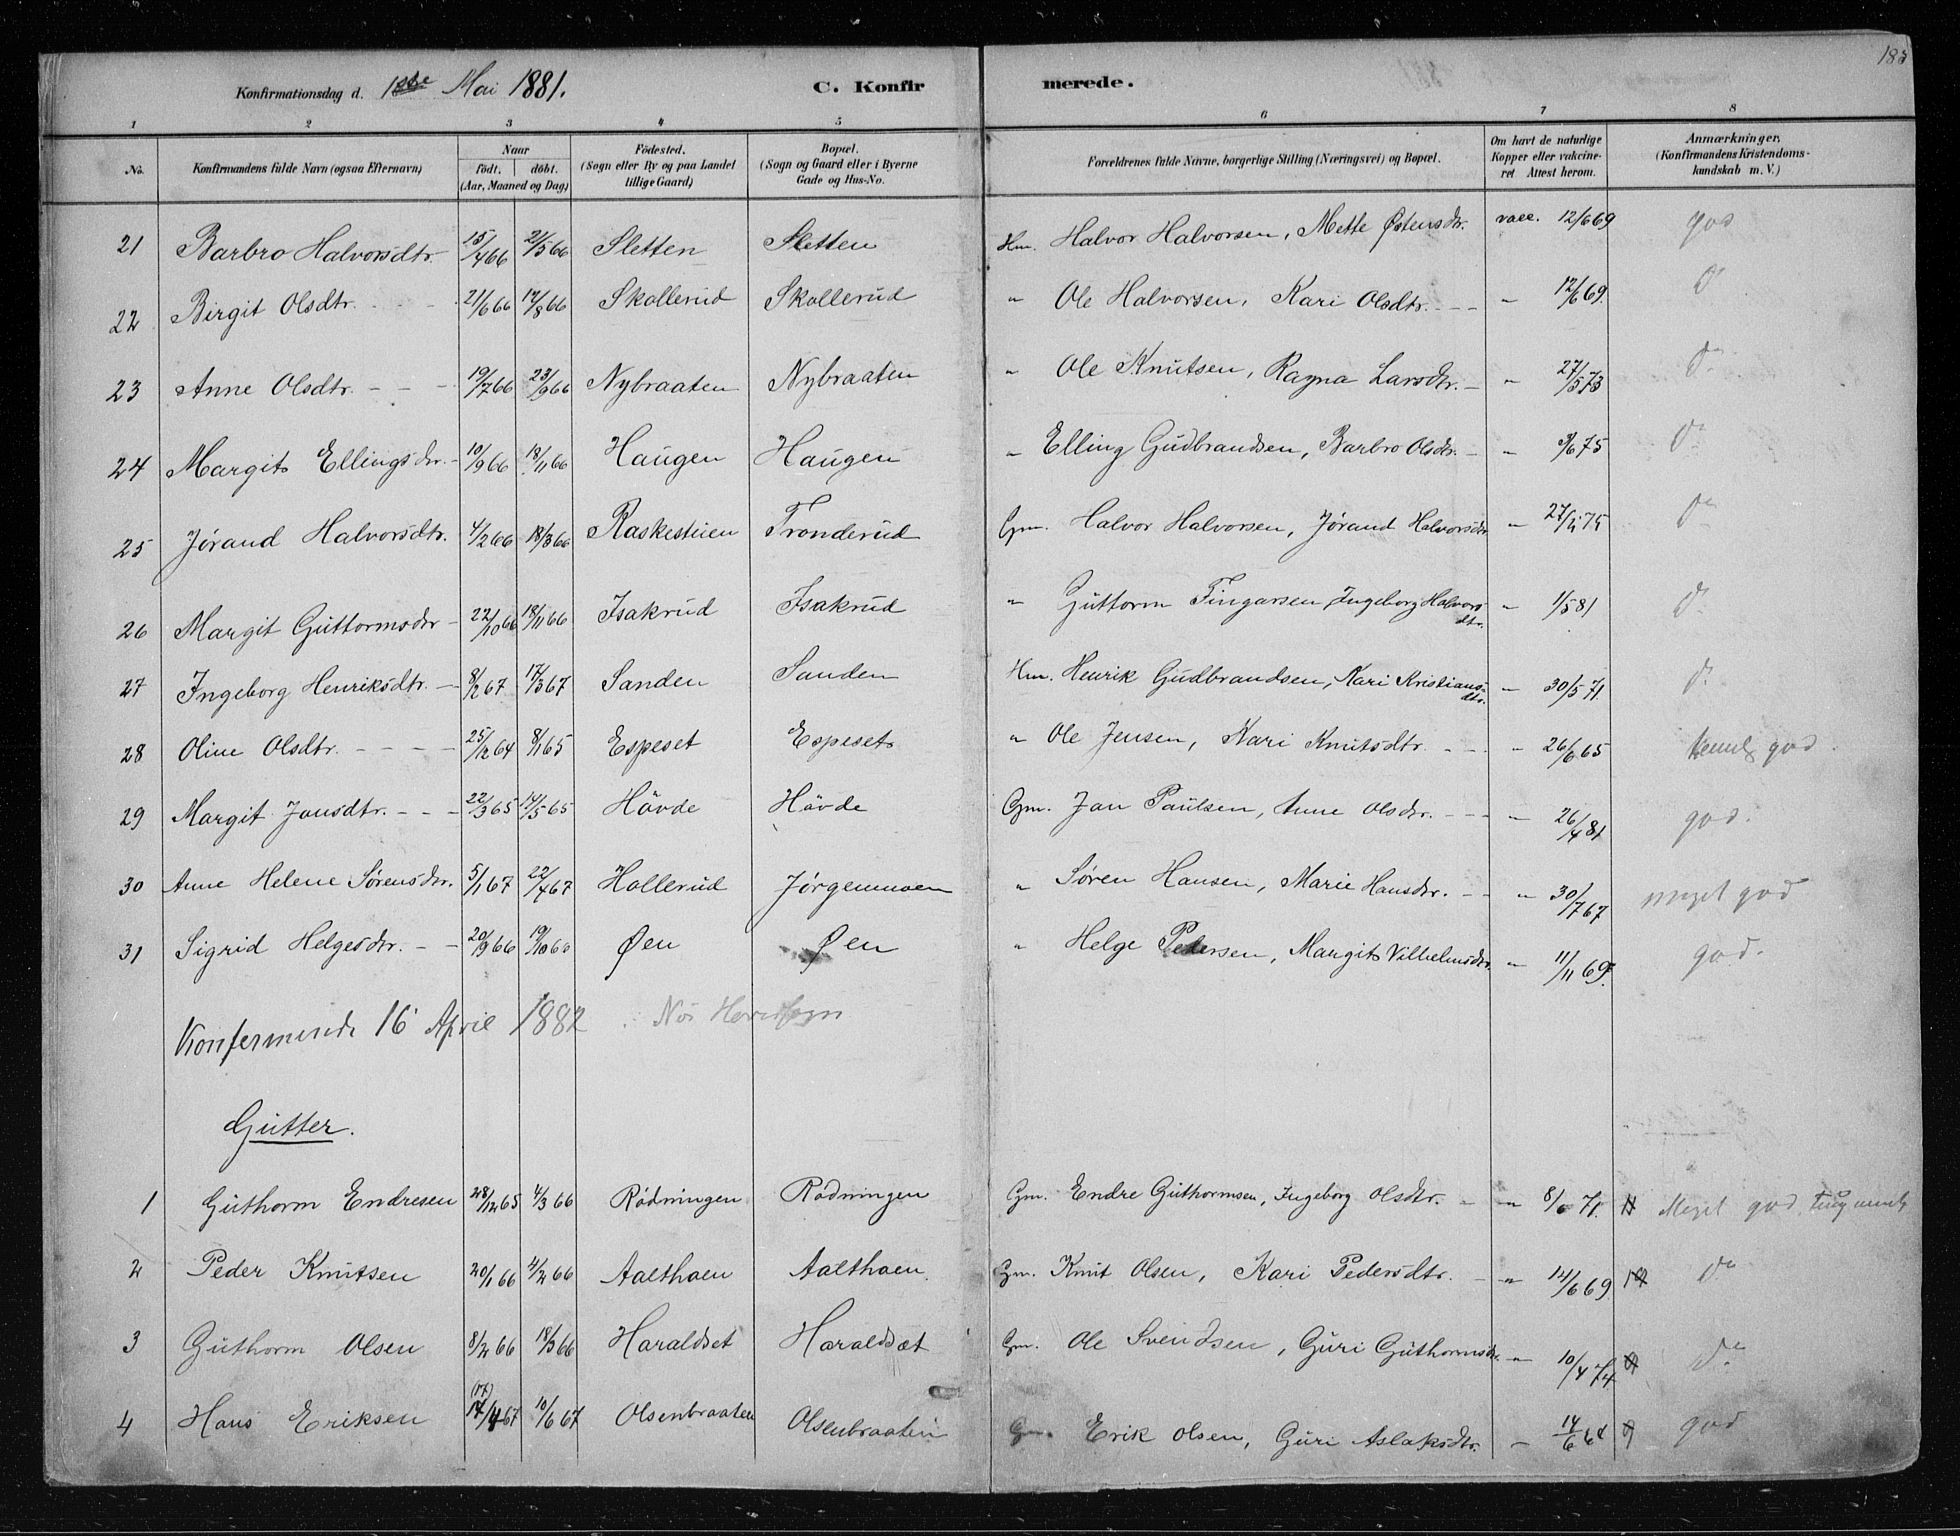 183
Konfirmationsdag d. 1ste Mai 1881. C. Konfirmerede.
1 2 3 4 5 6 7 8
No. Konfirmandens fulde Navn (ogsaa Efternavn) Naar födt. döbt. (Aar, Maaned og Dag) Födested. (Sogn eller By og paa Landet tillige Gaard) Bopæl. (Sogn og Gaard eller i Byerne Gade og Hus-No. Forældrenes fulde Navne, borgerlige Stilling (Næringsvei) og Bopæl. Om havt de naturlige Kopper eller vakcineret Attest herom. Anmærkninger. (Konfirmandens Kristendomskundskab m. V.)
21 Barbro Halvorsdtr. 15/4 66 21/5 66 Sletten Sletten Hm. Halvor Halvorsen, Mette Østensdtr. vacc. 12/6 69 god
22 Birgit Olsdtr. - - - 21/6 66 12/8 66 Skollerud Skollerud " Ole Halvorsen, Kari Olsdtr. - - - " 12/6 69. do
23 Anne Olsdtr. - - - 19/7 66 23/9 66 Nybraaten Nybraaten " Ole Knutsen, Ragna Larsdtr. - " 27/5 73 do
24 Margit Ellingsdtr. - 10/9 66 18/11 66 Haugen Haugen " Elling Gudbrandsen, Barbro Olsdtr. - " 3/6 75 do
25 Jørand Halvorsdtr. 4/2 66 18/3 66 Raskestuen Tronderud Gm. Halvor Halvorsen, Jørand Halvorsdtr " 27/ 75 do
26 Margit Guttormsdtr - 22/10 66 18/11 66 Isakrud Isakrud " Guttorm Fingarsen, Ingeborg Halvorsdtr. " 1/5 81 do
27 Ingeborg Henriksdtr. - 8/2 67 17/3 67 Sanden Sanden Hm. Henrik Gudbrandsen, Kari Kristiansdtr. " 30/5 71. do
28 Oline Olsdtr. - - - - 25/12 64 8/1 65 Espeset Espeset " Ole Jensen, Kari Knutsdtr. - - - " 26/6 65 teml. god.
29 Margit Jansdtr. - - - 22/3 65 14/5 65 Hövde Hövde Gm. Jan Paulsen, Anne Olsdtr. - - - " 26/4 81 god.
30 Anne Helene Sørensdtr. 5/1 67 22/4 67 Hollerud Jørgenmoen " Søren Hansen, Marie Hansdtr. - - " 30/7 67 meget god
31 Sigrid Helgesdtr. - - 20/9 66 19/10 66 Øen Øen " Helge Pedersen, Margit Vilhelmsdtr. " 11/11 69. god.
Konfermerede 16 April 1882
Gutter.
1 Guthorm Endresen 28/12 65 4/3 66 Rödningen Rödningen Gm. Endre Guthormsen, Ingeborg Olsdtr. - " 8/6 71. Meget god
2 Peder Knutsen 20/1 66 4/2 66 Aalthaen Aalthaen. Gm. Knut Olsen, Kari Pedersdtr. - " 12/6 69. do
3 Guthorm Olsen 8/2 66 18/3 66 Haraldset Haraldsæt Gm. Ole Svendsen, Guri Guthormsdtr. " 10/4 74 do
4 Hans Eriksen (17) 17/4 67 10/6 67 Olsenbraaten Olsenbraaten Gm. Erik Olsen, Guri Aslaksdtr. - 14/6 64 god